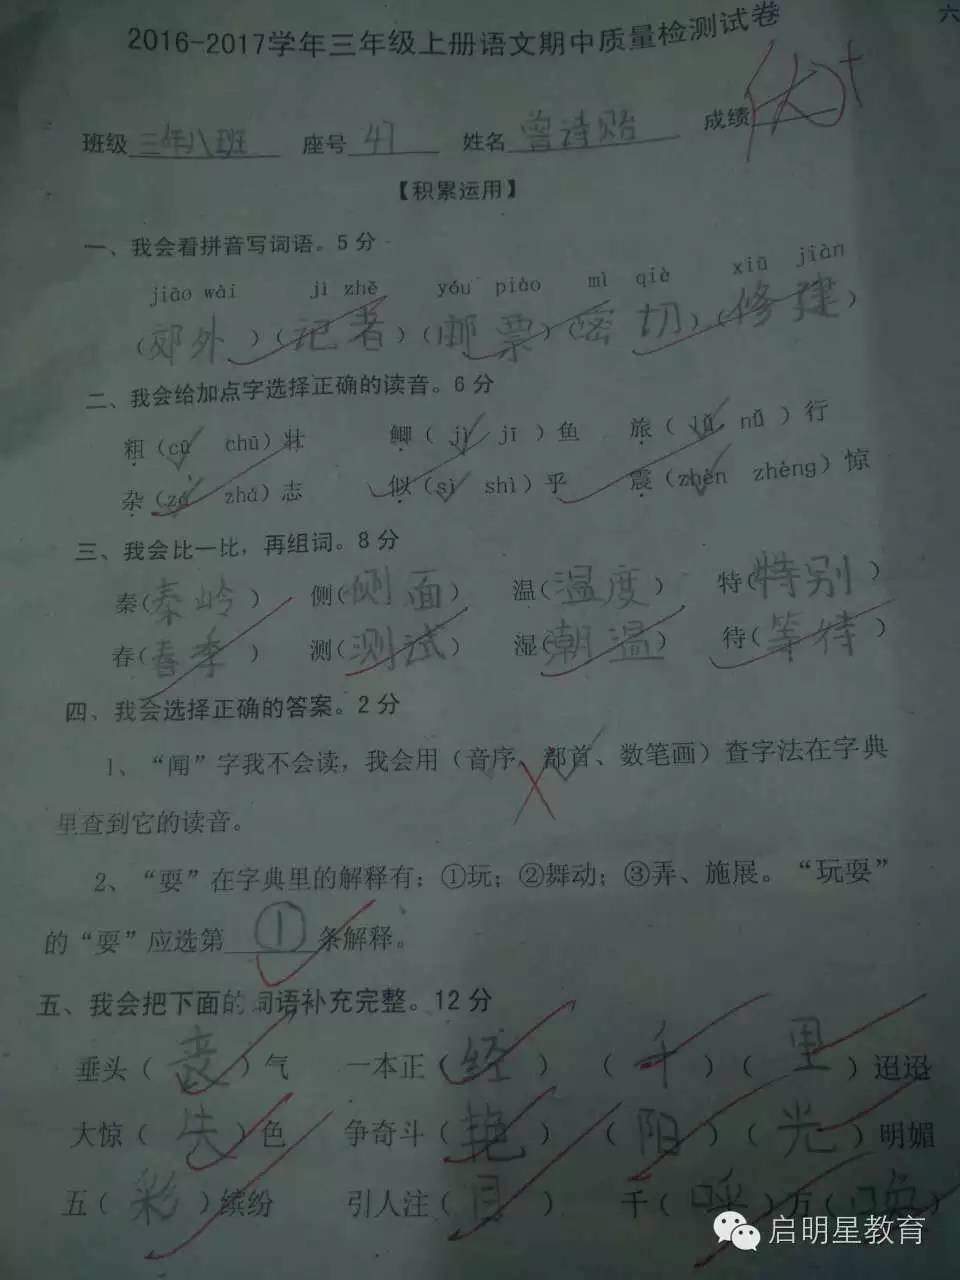 六
2016-2017学年三年级上册语文期中质量检测试卷
班级 三年八班 座号 41 姓名 曾诗贻 成绩 优+
【积累运用】
一、我会看拼音写词语。5 分
jiāo wài jì zhě yóu piào mì qiè xiū jiàn
(郊外)(记者)(邮票)(密切)(修建)
二、我会给加点字选择正确的读音。6 分
粗(cū chū)壮 鲫(jì jī)鱼 旅(lǚ nǚ)行
杂(zá zhá)志 似(sì shì)乎 震(zhèn zhèng)惊
三、我会比一比，再组词。8 分
秦(秦岭) 侧(侧面) 温(温度) 特(特别)
春(春季) 测(测试) 湿(潮温) 待(等待)
四、我会选择正确的答案。2 分
1、“闻”字我不会读，我会用(音序、部首、数笔画)查字法在字典
里查到它的读音。
2、“耍”在字典里的解释有：①玩；②舞动；③弄、施展。“玩耍”
的“耍”应选第 ① 条解释。
五、我会把下面的词语补充完整。12 分
垂头(丧)气 一本正(经) (千)(里)迢迢
大惊(失)色 争奇斗(艳) (阳)(光)明媚
五(彩)缤纷 引人注(目) 千(呼)万(唤)
启明星教育